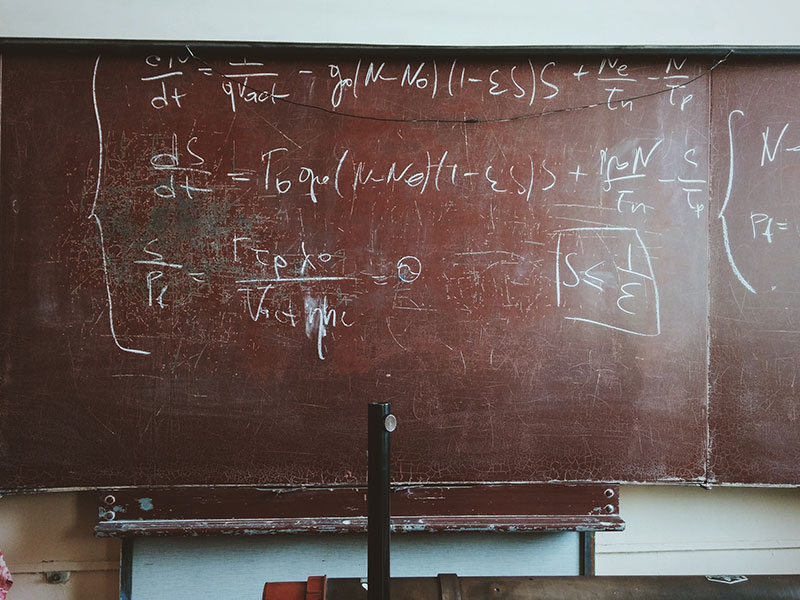 dN/dt = I/qVact - g₀(N-N₀)(1-εS)S + Ne/τn - N/τp
dS/dt = Γb g₀(N-N₀)(1-εS)S + N/τn - S/τp
S/Pf = Γτpλ₀/Vact ηhc = ⓝ
S ≤ 1/ε
{ N -
Pf =